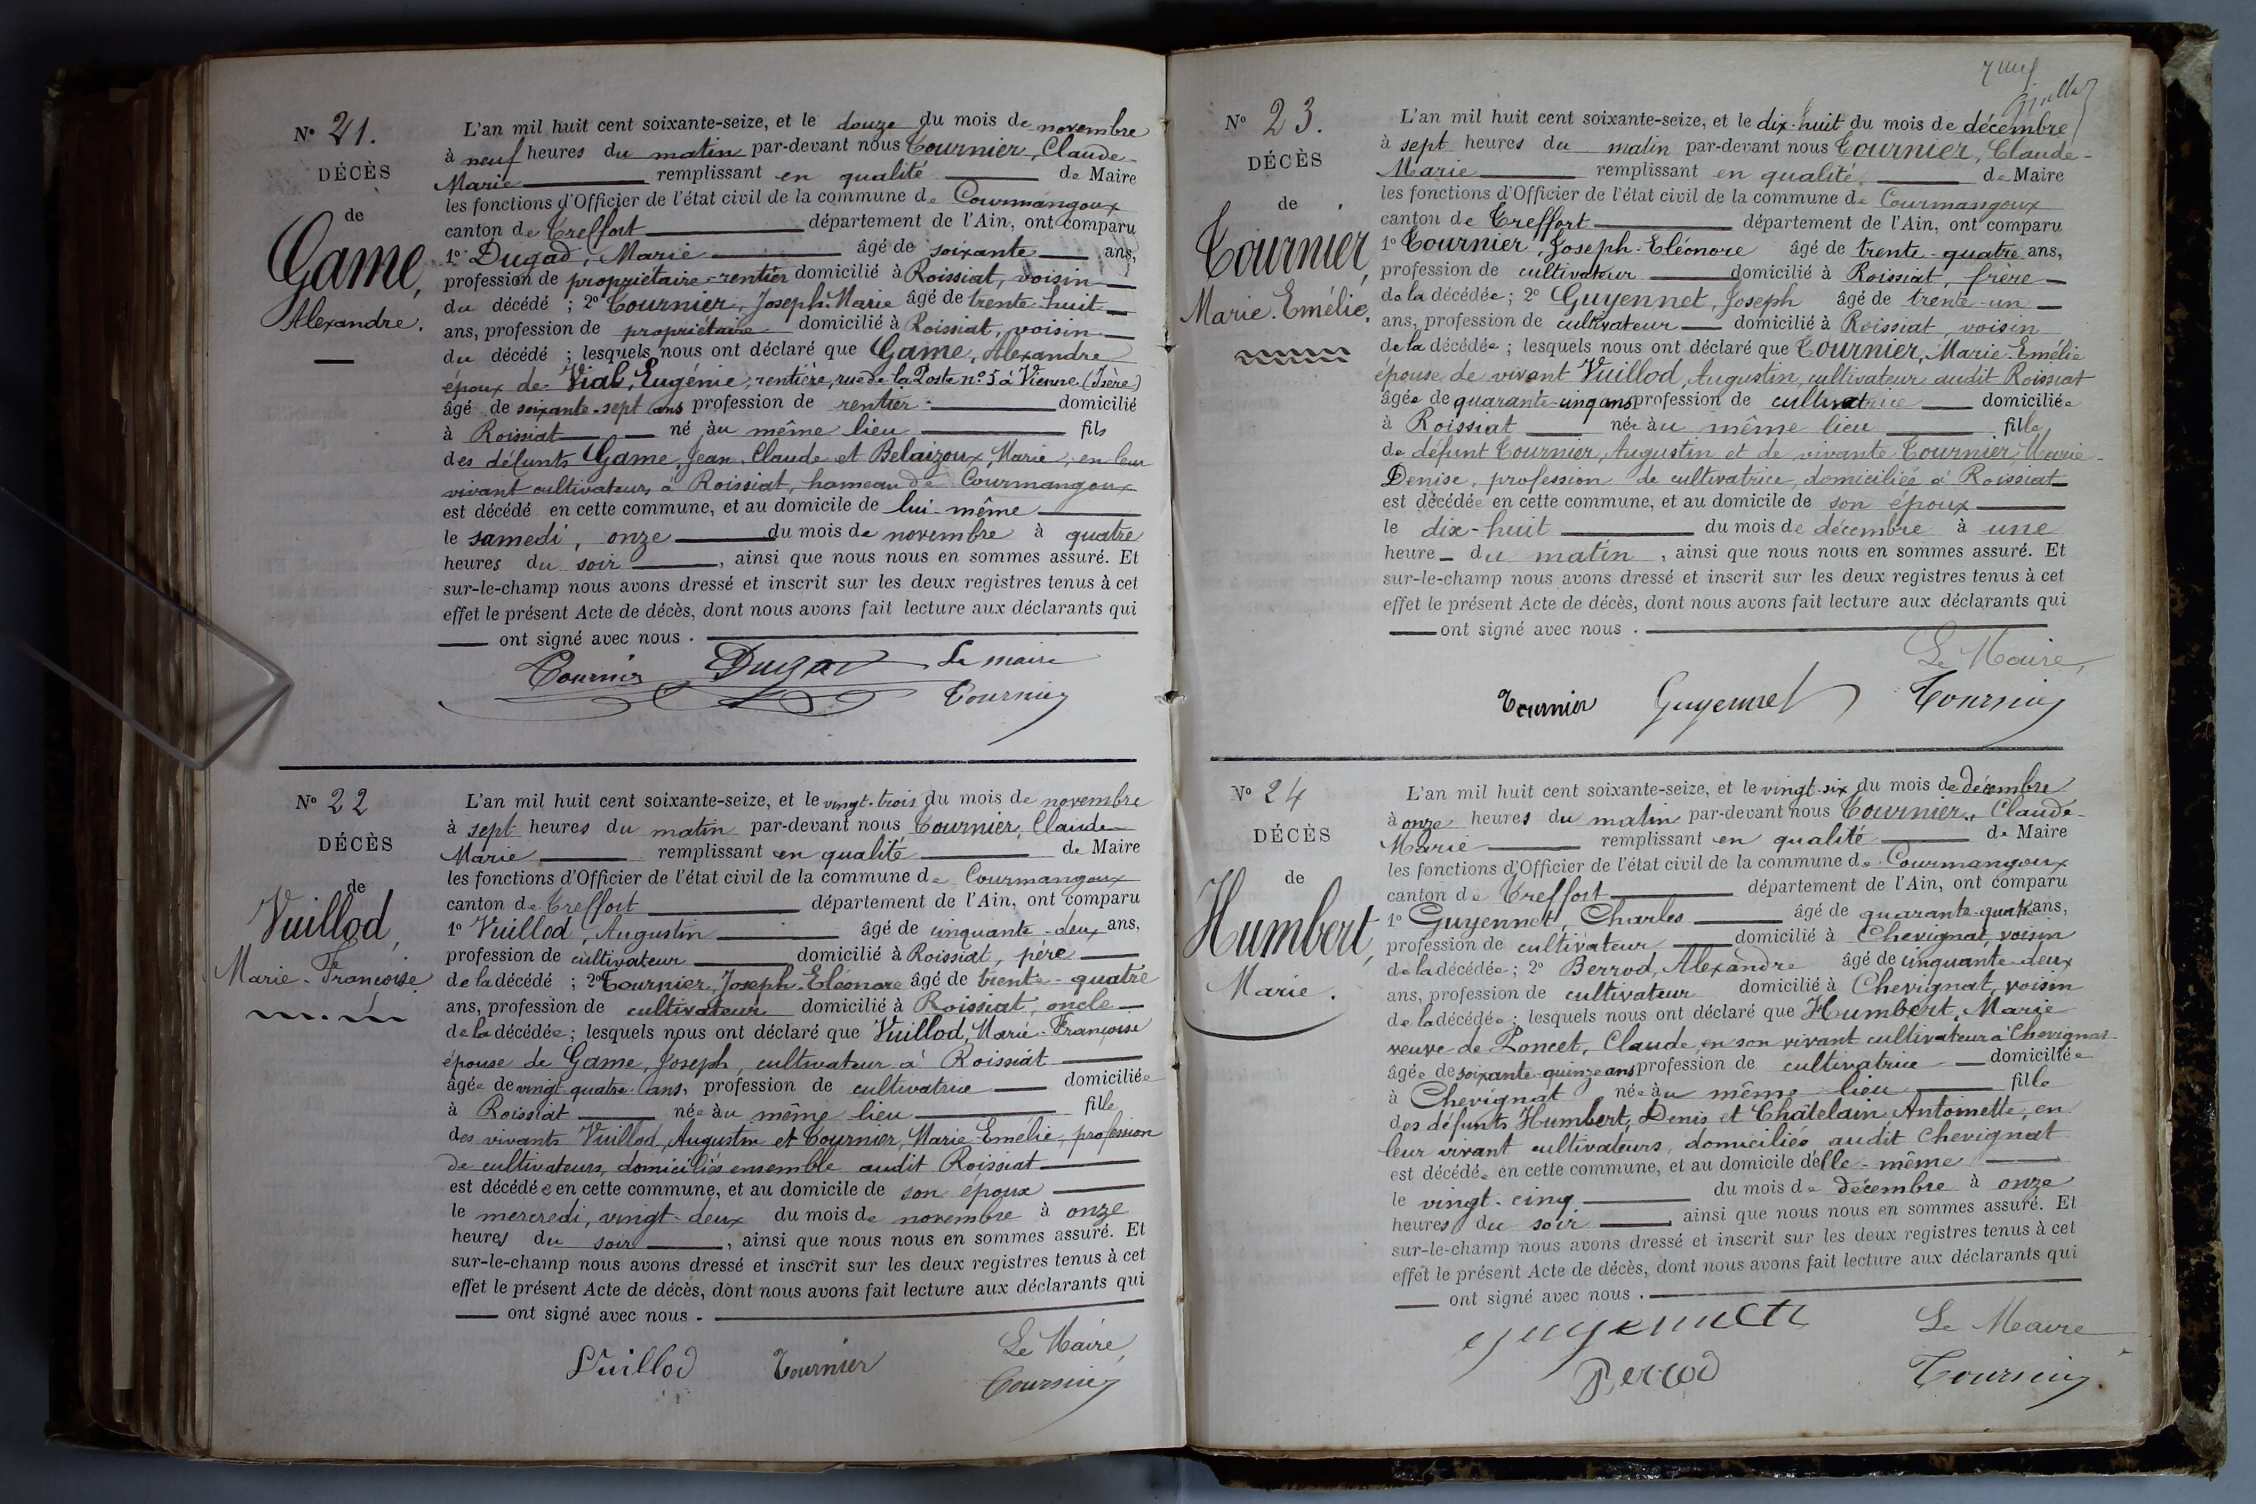 N° 21.
DÉCÈS
de
Game,
Alexandre.
L'an mil huit cent soixante-seize, et le douze du mois de novembre
à neuf heures du matin par-devant nous Tournier, Claude-
Marie remplissant en qualité de Maire
les fonctions d'Officier de l'état civil de la commune de Courmangoux
canton de Treffort département de l'Ain, ont comparu
1° Dugad, Marie âgé de soixante ans,
profession de propriétaire-rentier domicilié à Roissiat, voisin
du décédé ; 2° Tournier, Joseph-Marie âgé de trente-huit
ans, profession de propriétaire domicilié à Roissiat, voisin
du décédé ; lesquels nous ont déclaré que Game, Alexandre
époux de Vial, Eugénie, rentière, rue de la Poste n° 5 à Vienne (Isère)
âgé de soixante-sept ans profession de rentier domicilié
à Roissiat né au même lieu fils
des défunts Game, Jean-Claude et Belaizoux, Marie, en leur
vivant cultivateurs à Roissiat, hameau de Courmangoux
est décédé en cette commune, et au domicile de lui-même
le samedi, onze du mois de novembre à quatre
heures du soir, ainsi que nous nous en sommes assuré. Et
sur-le-champ nous avons dressé et inscrit sur les deux registres tenus à cet
effet le présent Acte de décès, dont nous avons fait lecture aux déclarants qui
ont signé avec nous.
Tournier Dugad Le maire
Tournier
N° 22
DÉCÈS
de
Vuillod,
Marie-Françoise
L'an mil huit cent soixante-seize, et le vingt-trois du mois de novembre
à sept heures du matin par-devant nous Tournier, Claude
Marie remplissant en qualité de Maire
les fonctions d'Officier de l'état civil de la commune de Courmangoux
canton de Treffort département de l'Ain, ont comparu
1° Vuillod, Augustin âgé de cinquante-deux ans,
profession de cultivateur domicilié à Roissiat, père
de la décédé ; 2° Tournier, Joseph-Eléonore âgé de trente-quatre
ans, profession de cultivateur domicilié à Roissiat, oncle
de la décédée ; lesquels nous ont déclaré que Vuillod, Marie-Françoise
épouse de Game, Joseph, cultivateur à Roissiat
âgée de vingt-quatre ans, profession de cultivatrice domiciliée
à Roissiat née au même lieu fille
des vivants Vuillod, Augustin et Tournier, Marie-Emélie, profession
de cultivateurs, domiciliés ensemble audit Roissiat
est décédée en cette commune, et au domicile de son époux
le mercredi, vingt-deux du mois de novembre à onze
heures du soir, ainsi que nous nous en sommes assuré. Et
sur-le-champ nous avons dressé et inscrit sur les deux registres tenus à cet
effet le présent Acte de décès, dont nous avons fait lecture aux déclarants qui
ont signé avec nous.
Vuillod Tournier Le Maire,
Tournier
N° 23.
DÉCÈS
de
Tournier,
Marie-Emélie.
L'an mil huit cent soixante-seize, et le dix-huit du mois de décembre
à sept heures du matin par-devant nous Tournier, Claude-
Marie remplissant en qualité de Maire
les fonctions d'Officier de l'état civil de la commune de Courmangoux
canton de Treffort département de l'Ain, ont comparu
1° Tournier, Joseph-Eléonore âgé de trente-quatre ans,
profession de cultivateur domicilié à Roissiat, frère
de la décédée ; 2° Guyennet, Joseph âgé de trente-un
ans, profession de cultivateur domicilié à Roissiat, voisin
de la décédée ; lesquels nous ont déclaré que Tournier, Marie-Emélie
épouse de vivant Vuillod, Augustin, cultivateur audit Roissiat
âgée de quarante-cinq ans profession de cultivatrice domiciliée
à Roissiat née au même lieu fille
de défunt Tournier, Augustin et de vivante Tournier Marie-
Denise, profession de cultivatrice, domiciliée à Roissiat
est décédée en cette commune, et au domicile de son époux
le dix-huit du mois de décembre à une
heure du matin, ainsi que nous nous en sommes assuré. Et
sur-le-champ nous avons dressé et inscrit sur les deux registres tenus à cet
effet le présent Acte de décès, dont nous avons fait lecture aux déclarants qui
ont signé avec nous.
Le Maire,
Tournier Guyennet Tournier
N° 24
DÉCÈS
de
Humbert,
Marie.
L'an mil huit cent soixante-seize, et le vingt-six du mois de décembre
à onze heures du matin par-devant nous Tournier, Claude-
Marie remplissant en qualité de Maire
les fonctions d'Officier de l'état civil de la commune de Courmangoux
canton de Treffort département de l'Ain, ont comparu
1° Guyennet, Charles âgé de quarante-quatre ans,
profession de cultivateur domicilié à Chevignat, voisin
de la décédée ; 2° Berrod, Alexandre âgé de cinquante-deux
ans, profession de cultivateur domicilié à Chevignat, voisin
de la décédée ; lesquels nous ont déclaré que Humbert, Marie
veuve de Poncet, Claude, en son vivant cultivateur à Chevignat
âgée de soixante-quinze ans profession de cultivatrice domiciliée
à Chevignat née au même lieu fille
des défunts Humbert, Denis et Châtelain Antoinette, en
leur vivant cultivateurs, domiciliés audit Chevignat
est décédée en cette commune, et au domicile d'elle-même
le vingt-cinq du mois de décembre à onze
heures du soir, ainsi que nous nous en sommes assuré. Et
sur-le-champ nous avons dressé et inscrit sur les deux registres tenus à cet
effet le présent Acte de décès, dont nous avons fait lecture aux déclarants qui
ont signé avec nous.
Guyennett Le Maire
Berrod Tournier